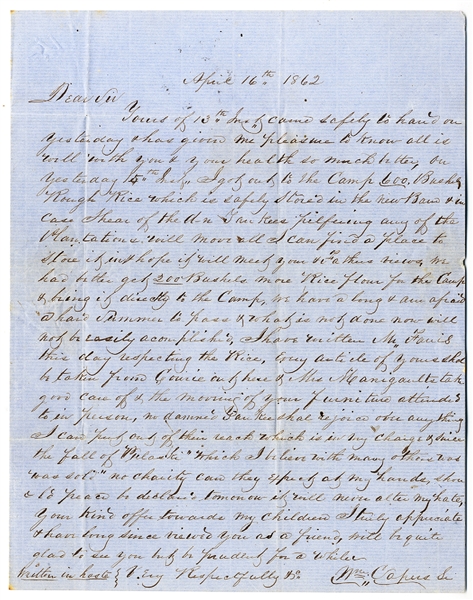 April 16th 1862
Dear Sir
Yours of 13th Inst came safely to hand on
yesterday & has given me pleasure to know all is
well with you & your health so much better, on
yesterday 15th Inst, I got out to the Camp 600 Bushls
Rough Rice which is safely stored in the new Barn & in
case I hear of the Yankees pilfering any of the
Plantations, will move all I can find a place to
Store it in & hope it will meet your & Fathers views, we
had better get 200 Bushels more Rice flour for the Camp
& bring it directly to the Camp, we have a long & am afraid
a hard Summer to pass & what is not done now will
not be easily acomplish'd, I have written Mr
this day respecting the Rice, every article of yours shd
be taken from Gowrie out here & Mrs Manigault to take
good care of & the moving of your furniture attended
to in person, no damned Yankee shal rejoice over any thing
I can put out of their reach which is in my charge & since
the fall of Pulaski "which I believe with many others was
was sold" no charity can they expect at my hands, shou
ld peace be declar'd tomorrow it will never alter my hate,
Your kind offer towards my children I truly appreciate
& have long since view'd you as a friend, will be quite
glad to see you but be prudent for a while
Written in haste } Very Respectfully &c Wm Capers Sr